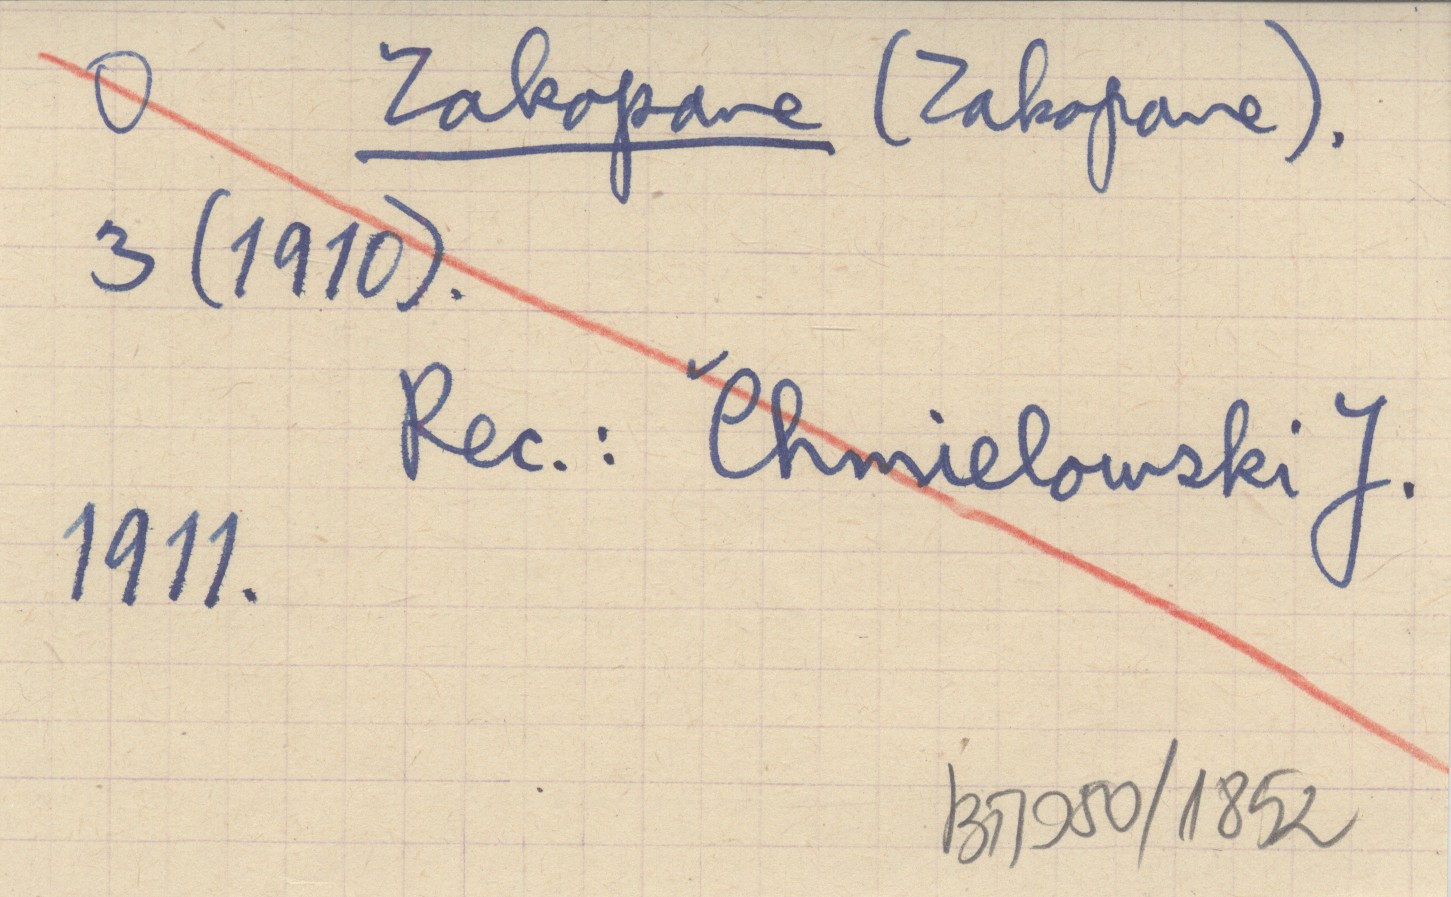 O Zakopane (Zakopane).
3 (1910).
Rec.: ˇChmielowski J.
1911.